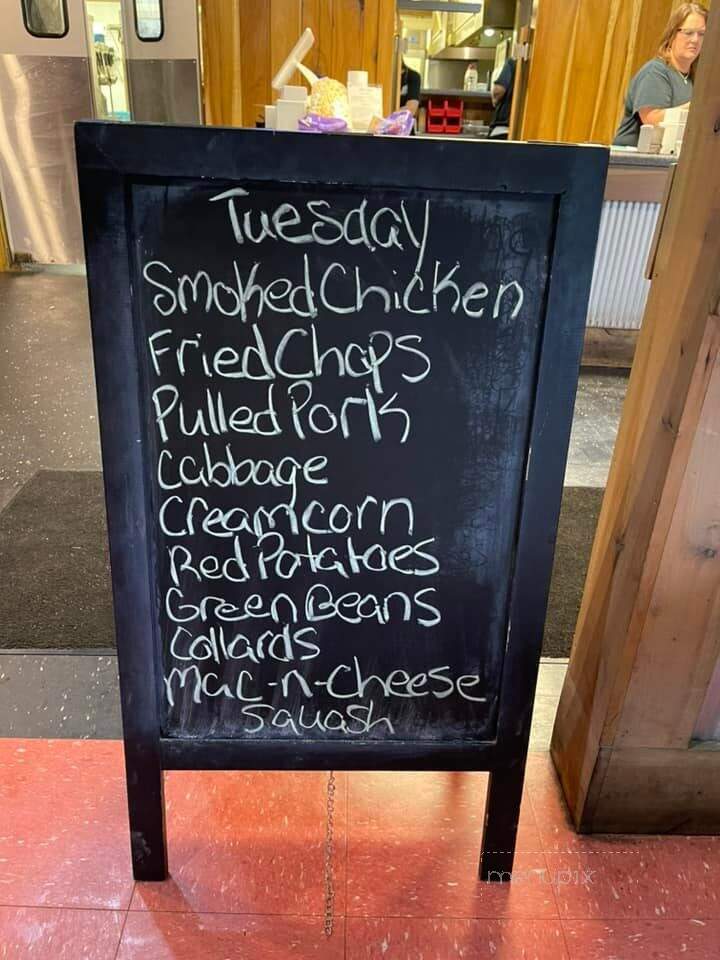 Tuesday
Smoked Chicken
Fried Chops
Pulled Pork
Cabbage
Cream corn
Red Potatoes
Green Beans
Collards
Mac-n-Cheese
Squash
menupix